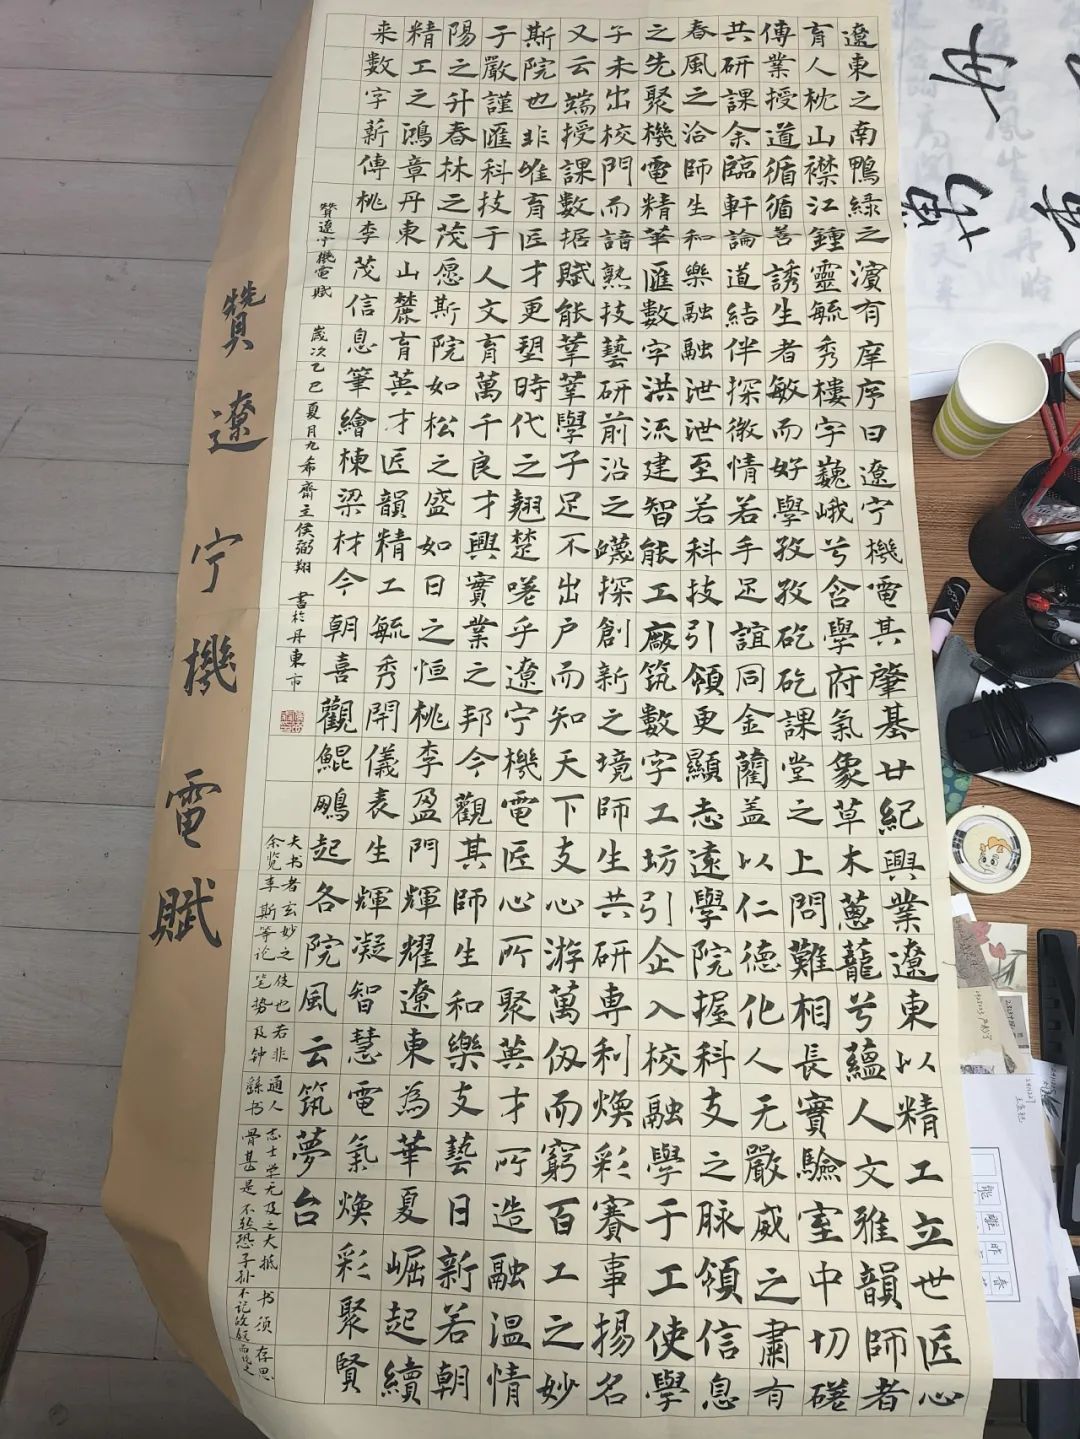 遼東之南鴨綠之濱有庠序曰遼宁機電其肇基廿紀興業遼東以精工立世匠心
育人枕山襟江鍾靈毓秀樓宇巍峨兮含學府氣象草木蔥蘢兮蘊人文雅韻師者
傳業授道循循善誘生者敏而好學孜孜矻矻課堂之上問難相長實驗室中切磋
共研課余臨軒論道結伴探微情若手足誼同金蘭盖以仁德化人无嚴威之肅有
春風之洽師生和樂融融泄泄至若科技引領更顯志遠學院握科支之脉領信息
之先聚機電精華匯數字洪流建智能工廠筑數字工坊引企入校融學于工使學
子未出校門而諳熟技藝研前沿之探創新之境師生共研専利煥彩賽事揚名
又云端授課數据賦能莘莘學子足不出户而知天下支心游萬仭而窮百工之妙
斯院也非唯育匠才更塑時代之翹楚嗟乎遼宁機電匠心所聚英才所造融温情
于嚴謹匯科技于人文育萬千良才興實業之邦今觀其師生和樂支藝日新若朝
陽之升春林之茂愿斯院如松之盛如日之恒桃李盈門輝耀遼東為華夏崛起續
精工之鴻章丹東山麓育英才匠韻精工毓秀開儀表生輝凝智慧電氣煥彩聚賢
来數字薪傳桃李茂信息筆繪棟梁材今朝喜觀鯤鵬起各院風云筑夢台
贊遼宁機電賦 歲次乙巳夏月九希齋主侯弼翔 書於丹東市
夫书者玄妙之伎也若非通人志士学无及之大抵书须存思
余览李斯等论笔势及钟繇书骨甚是不轻恐子孙不记故叙而论之
贊遼宁機電賦